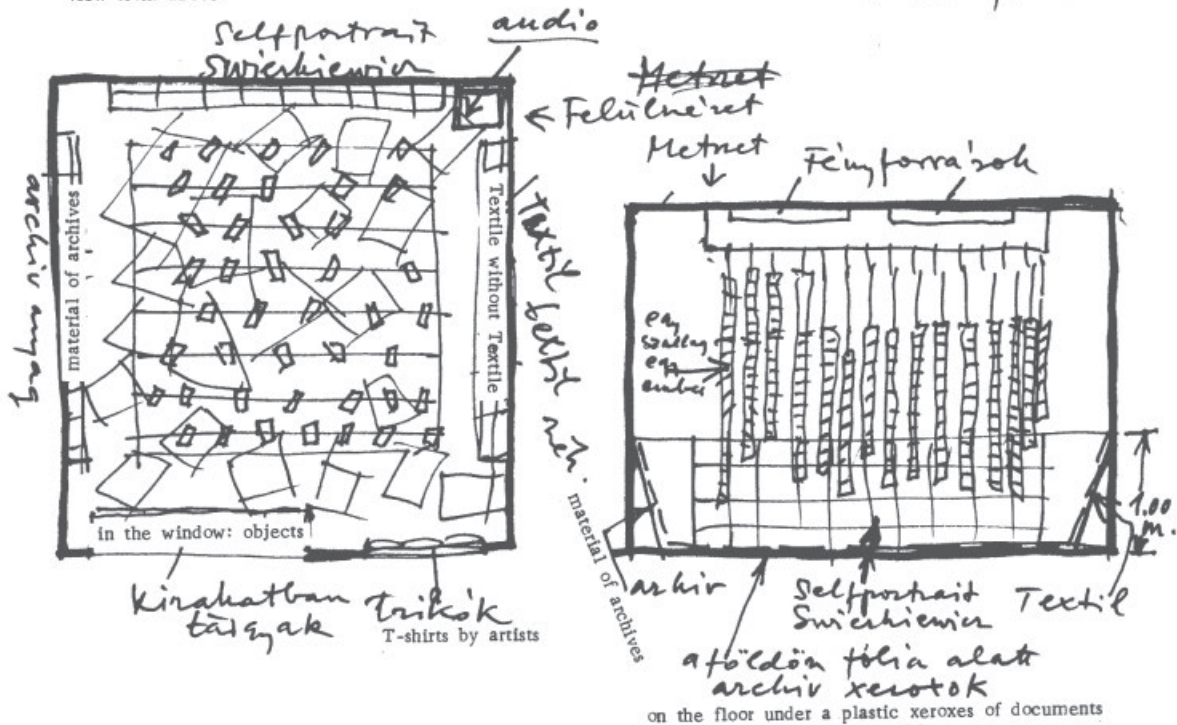 Selfportrait
Swierkiewicz
audio
Metszet
← Felülnézet
Metszet
Fényforrások
archiv anyag
material of archives
Textile without Textile
Textil textil nélk.
egy
szalag
egy
ember
in the window: objects
kirakatban
tárgyak
trikók
T-shirts by artists
material of archives
arhiv
Selfportrait
Swierkiewicz
Textil
1.00
m.
a földön fólia alatt
archiv xeroxok
on the floor under a plastic xeroxes of documents